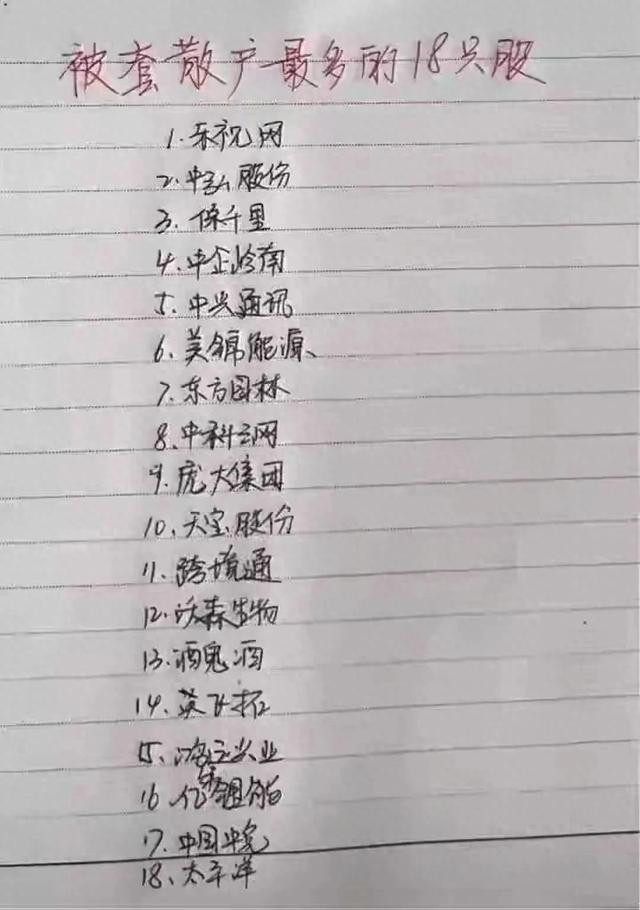 被套散户最多的18只股
1. 乐视网
2. 中弘股份
3. 保千里
4. 中金岭南
5. 中兴通讯
6. 美锦能源、
7. 东方园林
8. 中科云网
9. 庞大集团
10、天宝股份
11. 跨境通
12. 沃森生物
13. 酒鬼酒
14. 英飞拓
15. 兴业
16
17. 中国
18、太平洋